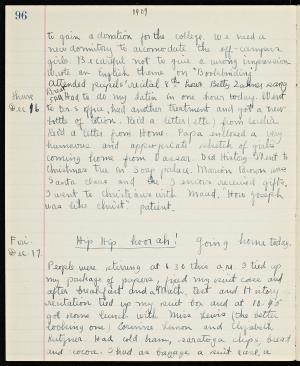 96
1909
to gain a donation for the college. We need a
new dormitory to accomodate the off-campus
girls. Be careful not to give a wrong impression
Wrote an English theme on "Bookbinding
attended pupils' recital 8th hour Betty Zabner sang
Thurs
Dec 16
Had to do my latin in one hour today. Went
to Dr's office, had another treatment and got a new
bottle of lotion. Rec'd a letter (etc) from
Rec'd a letter from Home. Papa enclosed a very
humorous and appropriate sketch of girls
coming home from Vassar. Did History. Went to
Christmas tree in Soap palace. Marion was
Santa claus and the Juniors received gifts.
I went to Christians with Maud. How Joseph
was like Christ: patient.
Fri.
Dec. 17
Hip Hip hoorah! Going home today.
People were stirring at 6:30 this a.m. I tied up
my package of papers, fixed my suit case and
after breakfast and a Math. test and History
recitation tied up my suit box and at 10.45
got some lunch with Miss Lewis (the better
looking one) Corinne Lemon and Elizabeth
Kutzner. Had cold ham, saratoga chips, bread
and cocoa. I had as baggage a suit case, a